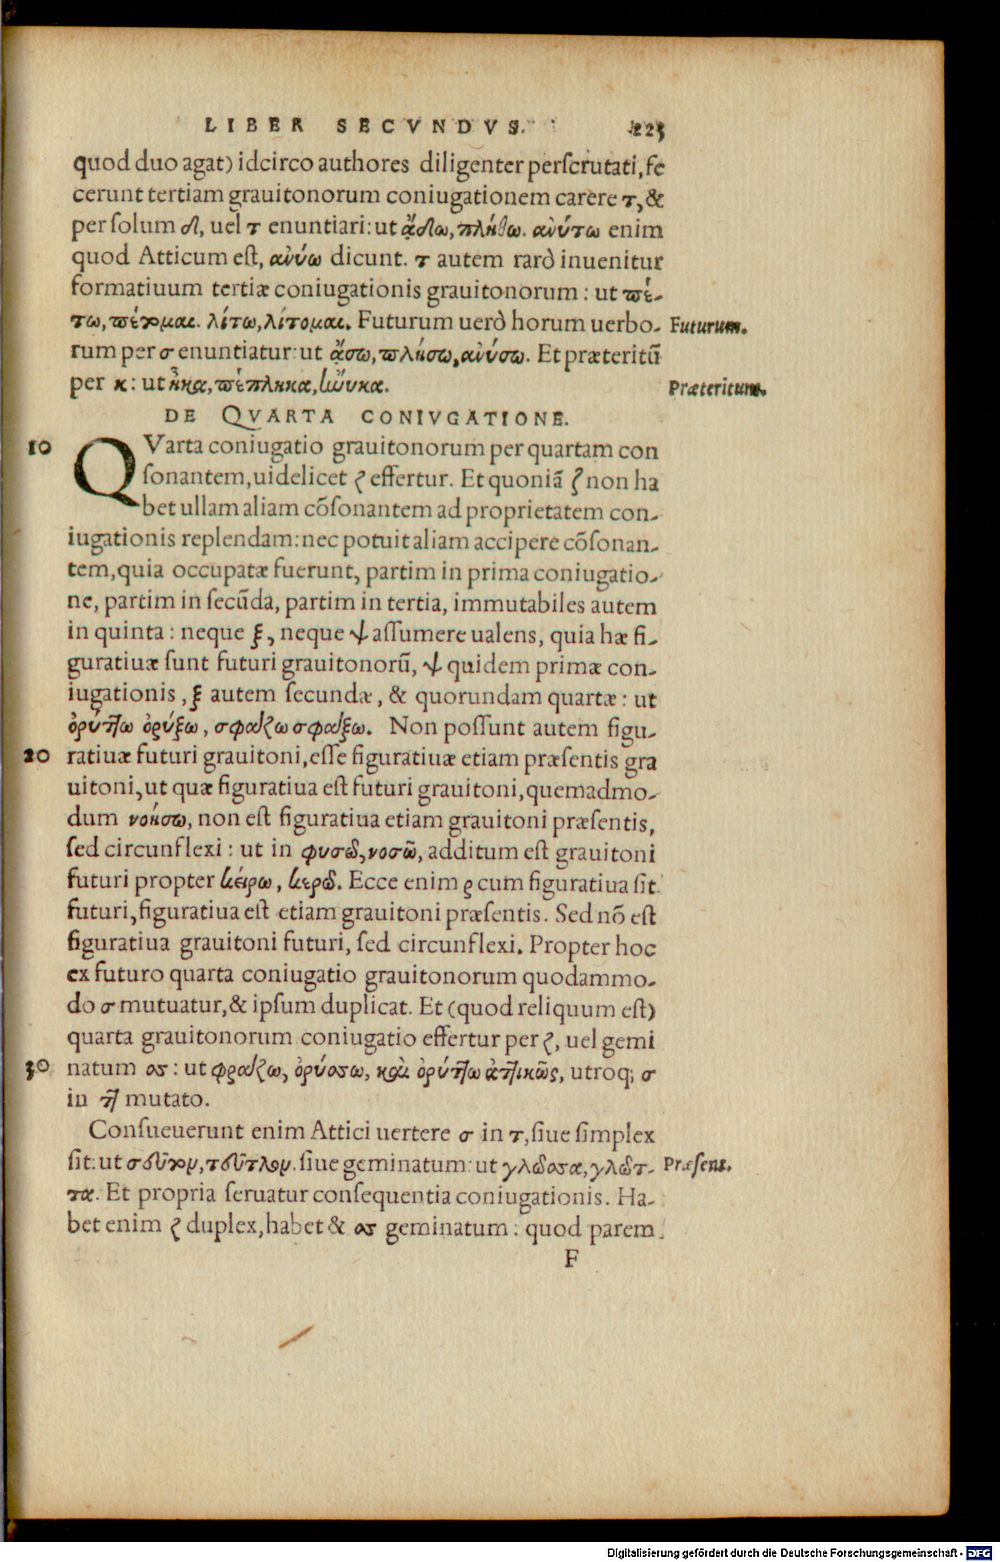 LIBER SECVNDVS. 225
quod duo agat) idcirco authores diligenter perscrutati, fe
cerunt tertiam grauitonorum coniugationem carere τ, &
per solum δ, uel τ enuntiari: ut ᾄδω, πλήθω. ἀνύτω enim
quod Atticum est, ἀνύω dicunt. τ autem rarò inuenitur
formatiuum tertiæ coniugationis grauitonorum: ut πέ-
τω, πέτομαι. λίτω, λίτομαι. Futurum uerò horum uerbo- Futurum.
rum per σ enuntiatur: ut ᾄσω, πλήσω, ἀνύσω. Et præteritũ
per κ: ut ἦκα, πέπληκα, ἤνυκα. Præteritum.
DE QVARTA CONIVGATIONE.
10 QVarta coniugatio grauitonorum per quartam con
sonantem, uidelicet ζ effertur. Et quoniã ζ non ha
bet ullam aliam cõsonantem ad proprietatem con-
iugationis replendam: nec potuit aliam accipere cõsonan-
tem, quia occupatæ fuerunt, partim in prima coniugatio-
ne, partim in secũda, partim in tertia, immutabiles autem
in quinta: neque ξ, neque ψ assumere ualens, quia hæ fi-
guratiuæ sunt futuri grauitonorũ, ψ quidem primæ con-
iugationis, ξ autem secundæ, & quorundam quartæ: ut
ὀρύττω ὀρύξω, σφάζω σφάξω. Non possunt autem figu-
20 ratiuæ futuri grauitoni, esse figuratiuæ etiam præsentis gra
uitoni, ut quæ figuratiua est futuri grauitoni, quemadmo-
dum νοήσω, non est figuratiua etiam grauitoni præsentis,
sed circunflexi: ut in φυσῶ, νοσῶ, additum est grauitoni
futuri propter κείρω, κερῶ. Ecce enim ρ cum figuratiua sit
futuri, figuratiua est etiam grauitoni præsentis. Sed nõ est
figuratiua grauitoni futuri, sed circunflexi. Propter hoc
ex futuro quarta coniugatio grauitonorum quodammo-
do σ mutuatur, & ipsum duplicat. Et (quod reliquum est)
quarta grauitonorum coniugatio effertur per ζ, uel gemi
30 natum σσ: ut φράζω, ὀρύσσω, καὶ ὀρύττω ἀττικῶς, utroq; σ
in ττ mutato.
Consueuerunt enim Attici uertere σ in τ, siue simplex
sit: ut σεῦτλον, τεῦτλον. siue geminatum: ut γλῶσσα, γλῶτ- Præsens.
τα. Et propria seruatur consequentia coniugationis. Ha-
bet enim ζ duplex, habet & σσ geminatum: quod parem
F
Digitalisierung gefördert durch die Deutsche Forschungsgemeinschaft - DFG